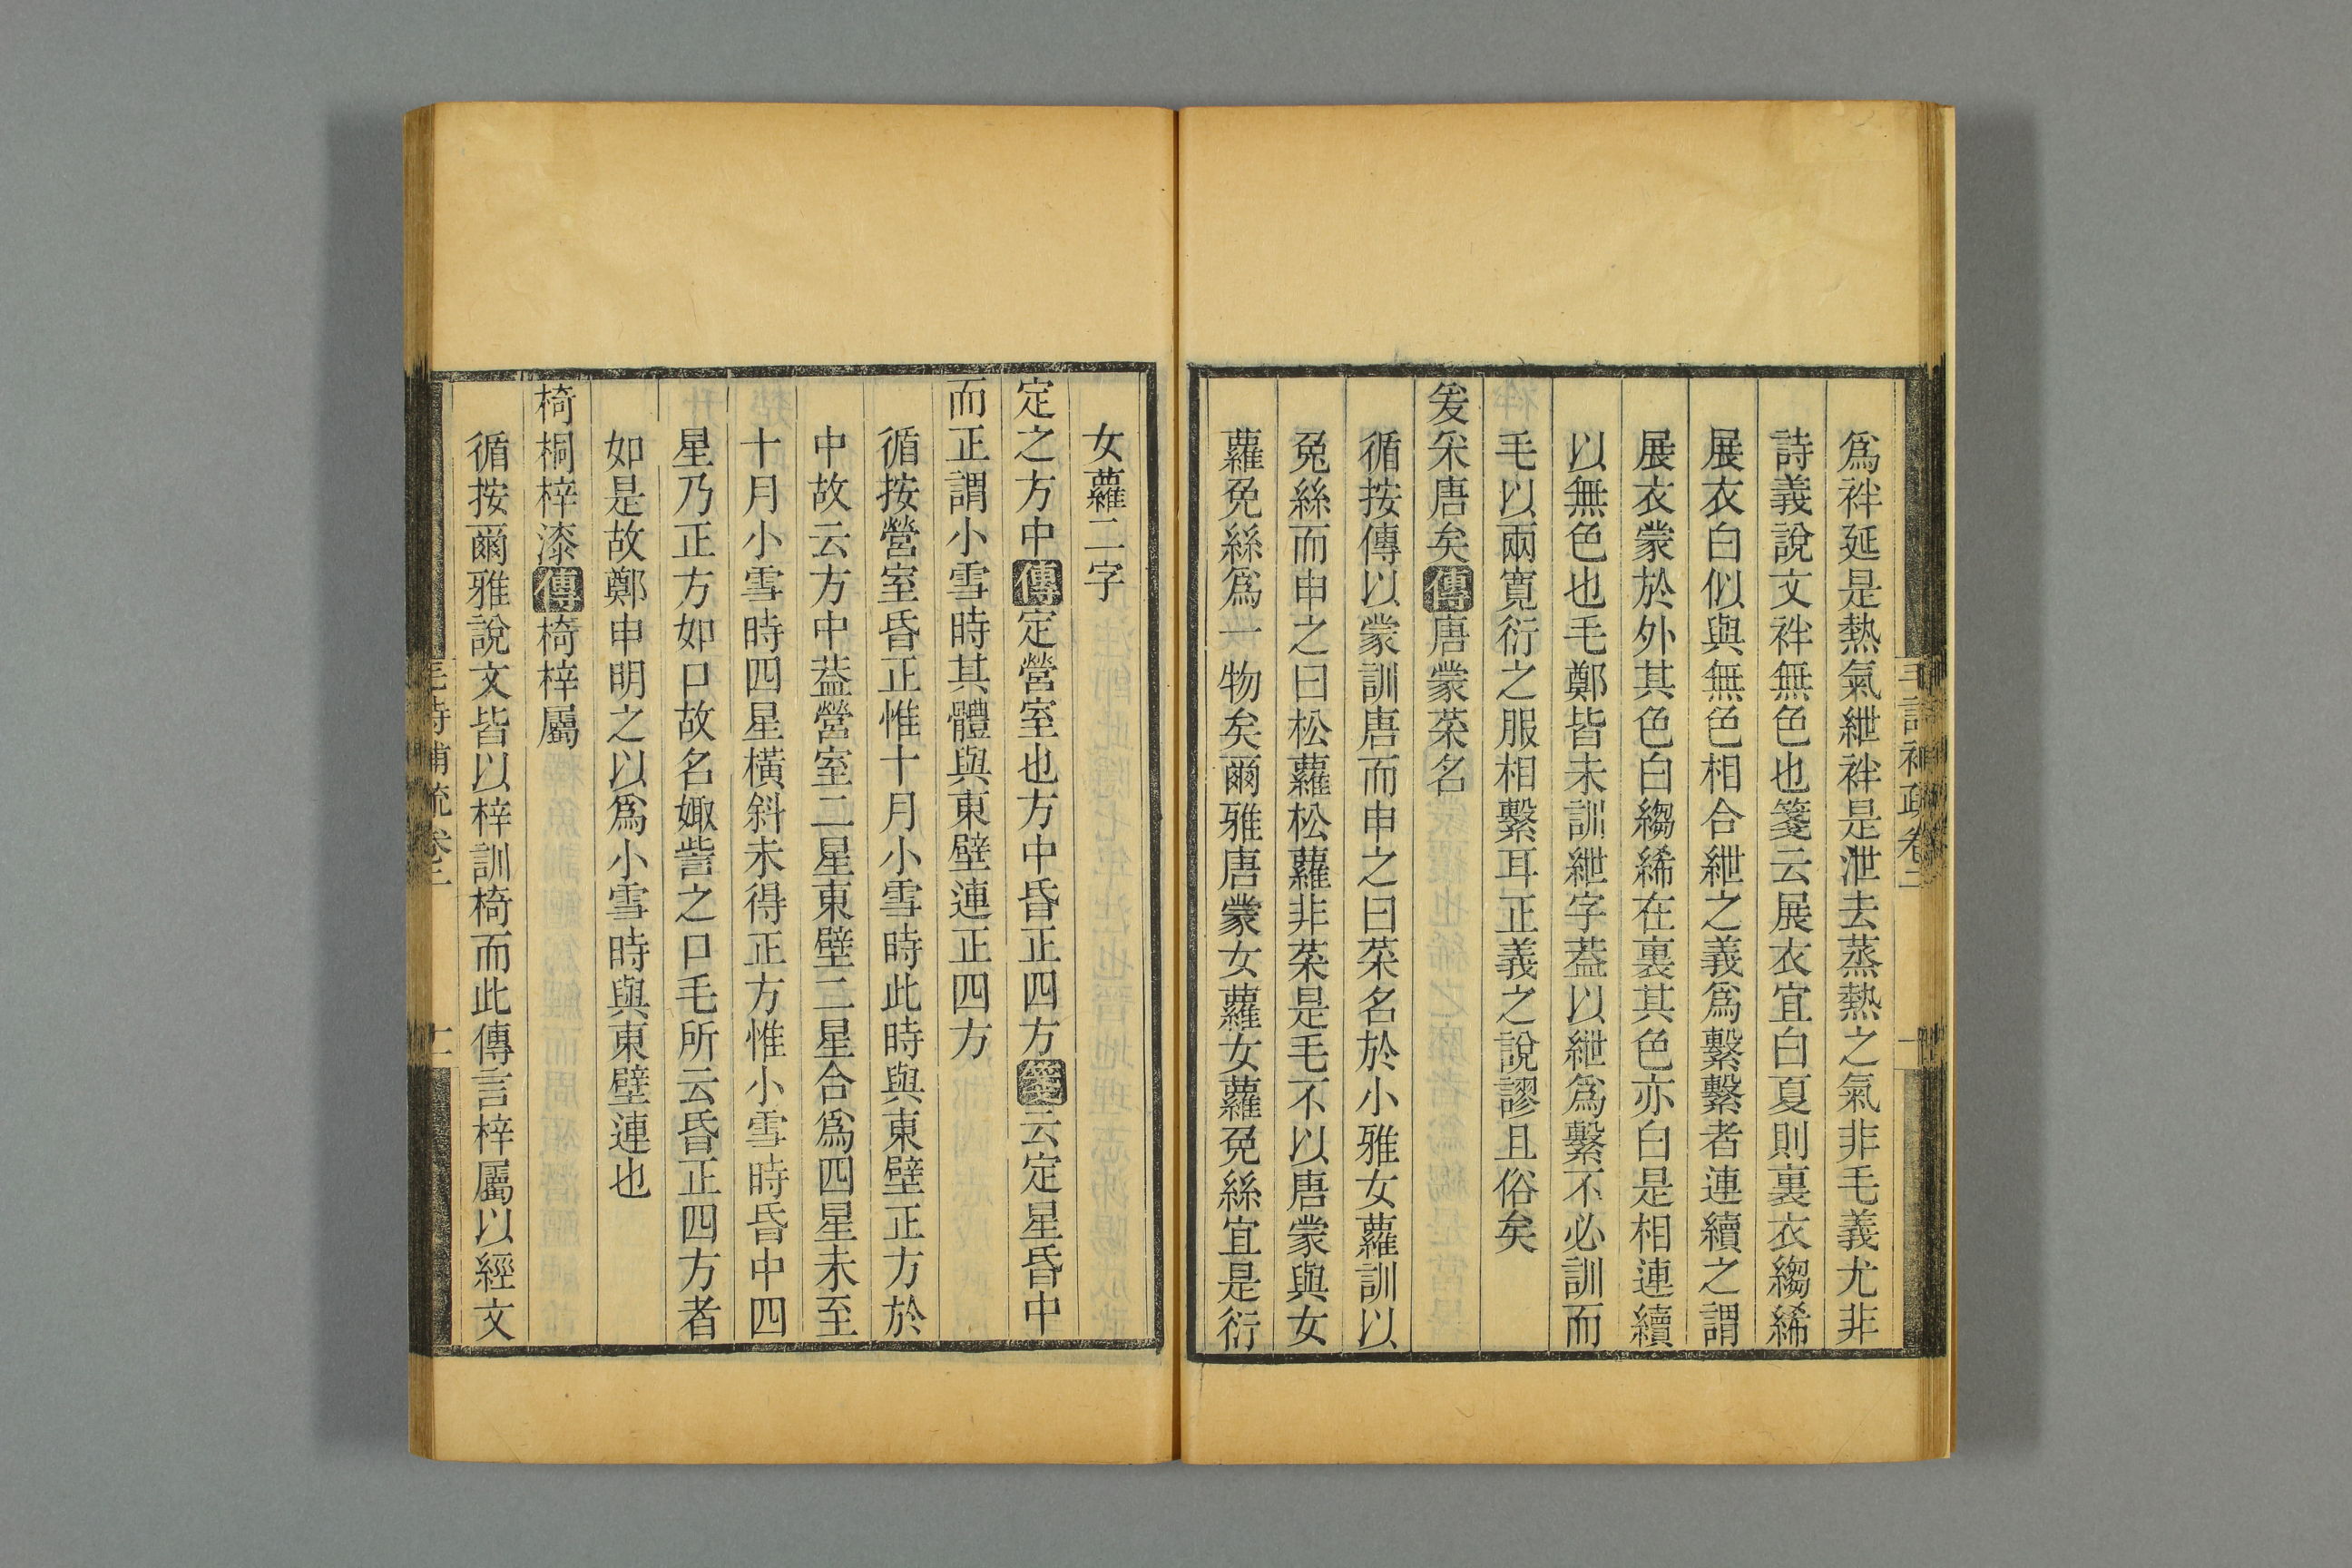 爲袢延是熱氣紲袢是泄去蒸熱之氣非毛義尤非
詩義說文袢無色也箋云展衣宜白夏則裏衣縐絺
展衣白似與無色相合紲之義爲繫繫者連續之謂
展衣蒙於外其色白縐絺在裏其色亦白是相連續
以無色也毛鄭皆未訓紲字葢以紲爲繫不必訓而
毛以兩寬衍之服相繫耳正義之說謬且俗矣
爰采唐矣傳唐蒙菜名
循按傳以蒙訓唐而申之曰菜名於小雅女蘿訓以
兔絲而申之曰松蘿松蘿非菜是毛不以唐蒙與女
蘿兔絲爲一物矣爾雅唐蒙女蘿女蘿兔絲宜是衍
女蘿二字
定之方中傳定營室也方中昏正四方箋云定星昏中
而正謂小雪時其體與東壁連正四方
循按營室昏正惟十月小雪時此時與東壁正方於
中故云方中葢營室二星東壁二星合爲四星未至
十月小雪時四星橫斜未得正方惟小雪時昏中四
星乃正方如口故名娵訾之口毛所云昏正四方者
如是故鄭申明之以爲小雪時與東壁連也
椅桐梓漆傳椅梓屬
循按爾雅說文皆以梓訓椅而此傳言梓屬以經文